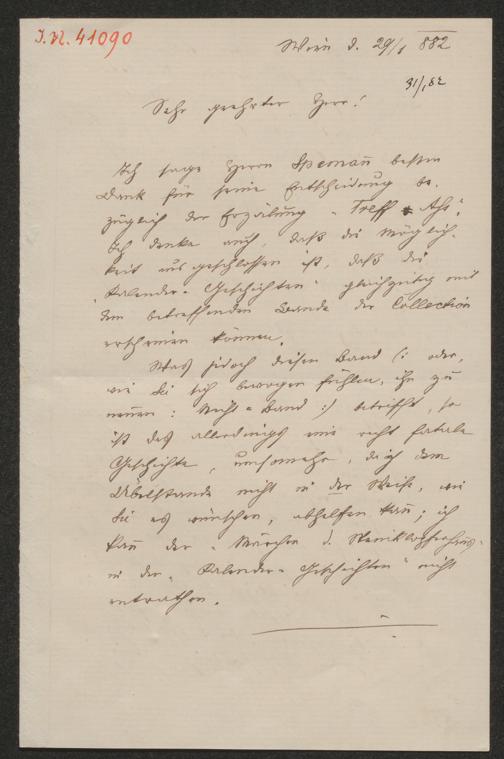 I.N. 41090
Wien d. 29/1 882
31/1 82
Sehr geehrter Herr!
Ich sage Herrn Spemann besten
Dank für seine Entscheidung be-
züglich der Erzälung "Treff-Aß".
Ich denke auch, daß die Möglich-
keit ausgeschlossen ist, daß die
"Kalender-Geschichten" gleichzeitig mit
dem betreffenden Bande der Collection
erscheinen können.
Was jedoch diesen Band (: oder,
wie Sie sich bewogen fühlen, ihn zu
nennen: Nicht-Band :) betrifft, so
ist das allerdings eine recht fatale
Geschichte, umsomehr, da ich dem
Übelstande nicht in der Weise, wie
Sie es wünschen, abhelfen kann; ich
kann der "Märchen d. Steinklopferhans"
in den "Kalender-Geschichten" nicht
entrathen.